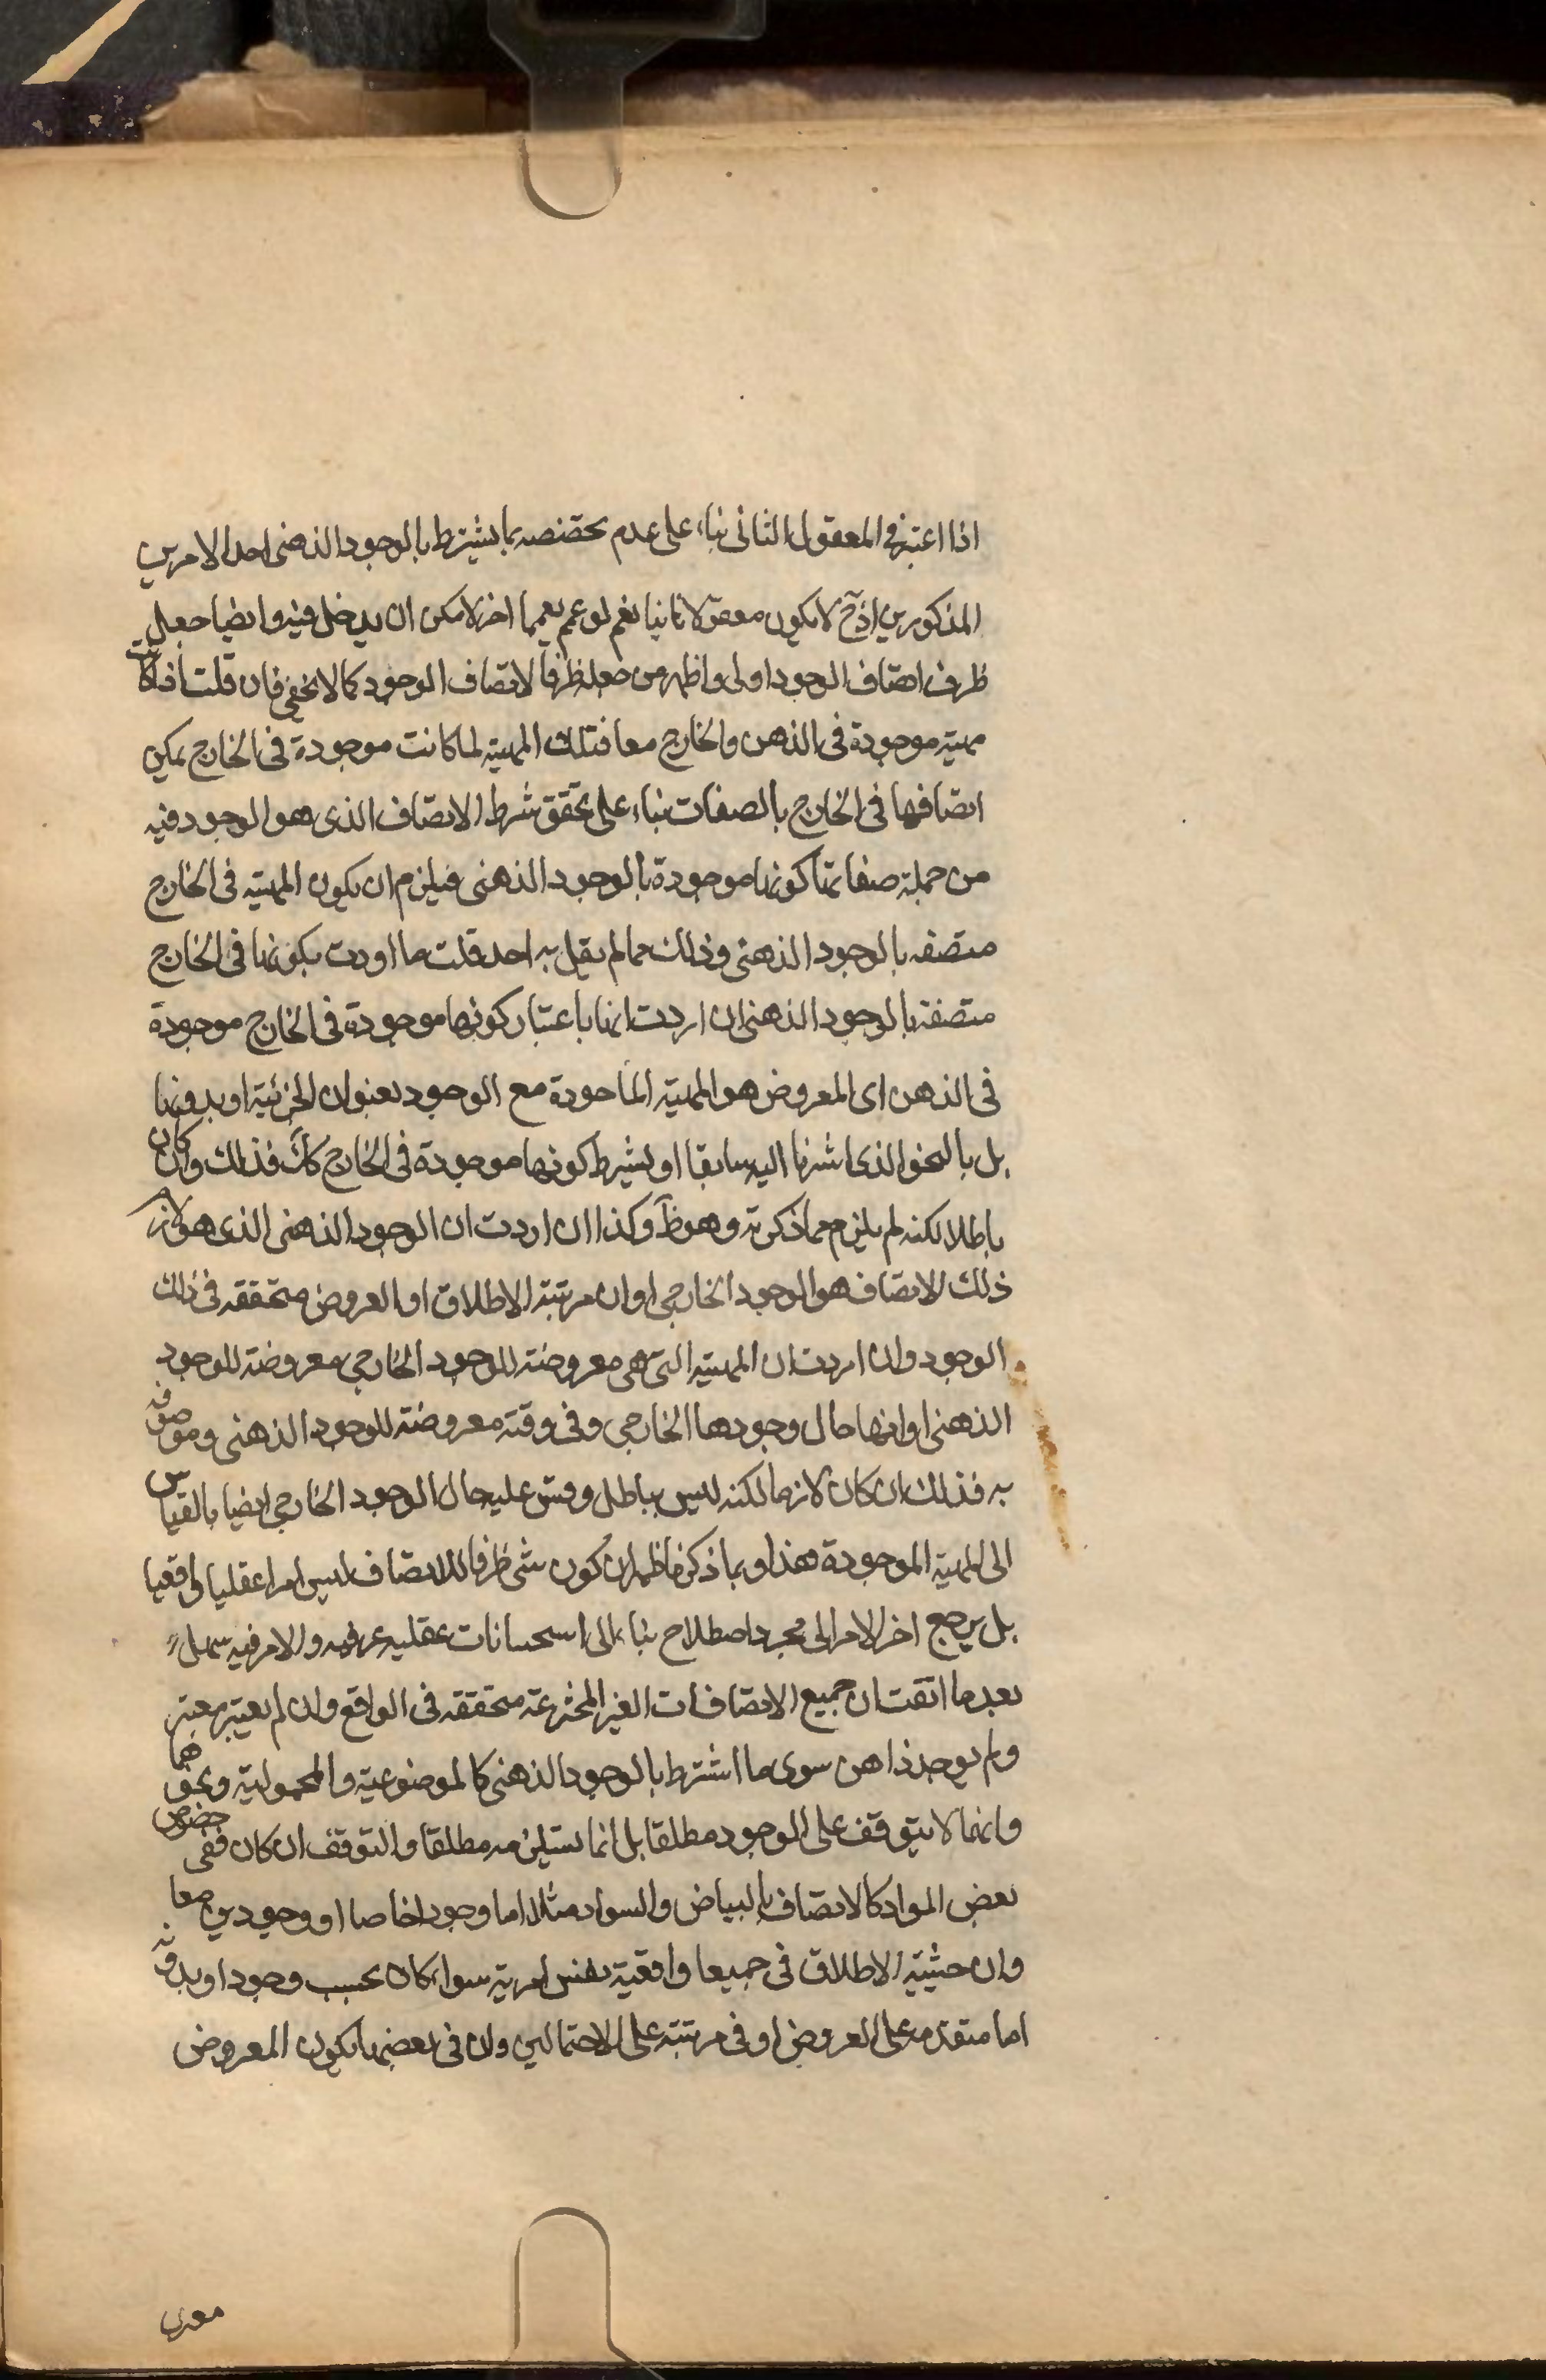 اذا اعتبر في المعقول الثاني بناء على عدم تخصصه بما يشترط بالوجود الذهني احد الامرين
المذكورين اذ ح لا يكون معقولا ثانيا نعم لو عمم تعميما اخر لامكن ان يدخل فيه وايضا جعل
ظرف اتصاف الوجود اولى واظهر من جعله ظرفا لاتصاف الوجود كما لا يخفى فان قلت اذا كانت
مهية موجودة في الذهن والخارج معا فتلك المهية لما كانت موجودة في الخارج يمكن
اتصافها في الخارج بالصفات بناء على تحقق شرط الاتصاف الذي هو الوجود فيه
من جملة صفاتها كونها موجودة بالوجود الذهني فيلزم ان يكون المهية في الخارج
متصفه بالوجود الذهني وذلك مما لم يقل به احد قلت ما اوردت بكونها في الخارج
متصفة بالوجود الذهني ان اردت انها باعتبار كونها موجودة في الخارج موجودة
في الذهن اى المعروض هو المهية الماخودة مع الوجود بعنوان الجزئية او بدونها
بل بالنحو الذي اشرنا اليه سابقا او بشرط كونها موجودة في الخارج كك فذلك وان كان
باطلا لكنه لم يلزم مما ذكرته وهو ظ وكذا ان اردت ان الوجود الذهني الذي هو لازم
ذلك الاتصاف هو الوجود الخارجي او ان مرتبة الاطلاق او العروض متحققه في ذلك
الوجود وان اردت ان المهية التي هي معروضة للوجود الخارجي معروضة للوجود
الذهني او انها حال وجودها الخارجي وفي وقته معروضة للوجود الذهني وموصوفه
به فذلك ان كان لازما لكنه ليس بباطل وقس عليه حال الوجود الخارجي ايضا بالقياس
الى المهية الموجودة هذا وبما ذكرنا ظهر ان كون شى ظرفا للاتصاف ليس امرا عقليا واقعيا
بل يرجع اخر الامر الى مجرد اصطلاح بناء الى استحسانات عقليه عرفيه والامر فيه سهل
بعد ما اتقنت ان جميع الاتصافات الغير المخترعة متحققه في الواقع وان لم يعتبر معتبر
ولم يوجد ذاهن سوى ما اشترط بالوجود الذهني كالموضوعية والمحمولية ونحوهما
وانها لا يتوقف على الوجود مطلقا بل انما يستلزمه مطلقا والتوقف ان كان ففي خصوص
بعض المواد كالاتصاف بالبياض والسواد مثلا اما وجودا خاصا او وجودين معا
وان حيثية الاطلاق في جميعا واقعية نفس امرية سواء كان بحسب وجود او بدونه
اما متقدمه على العروض او في مرتبته على الاحتمالين وان في بعضها يكون المعروض